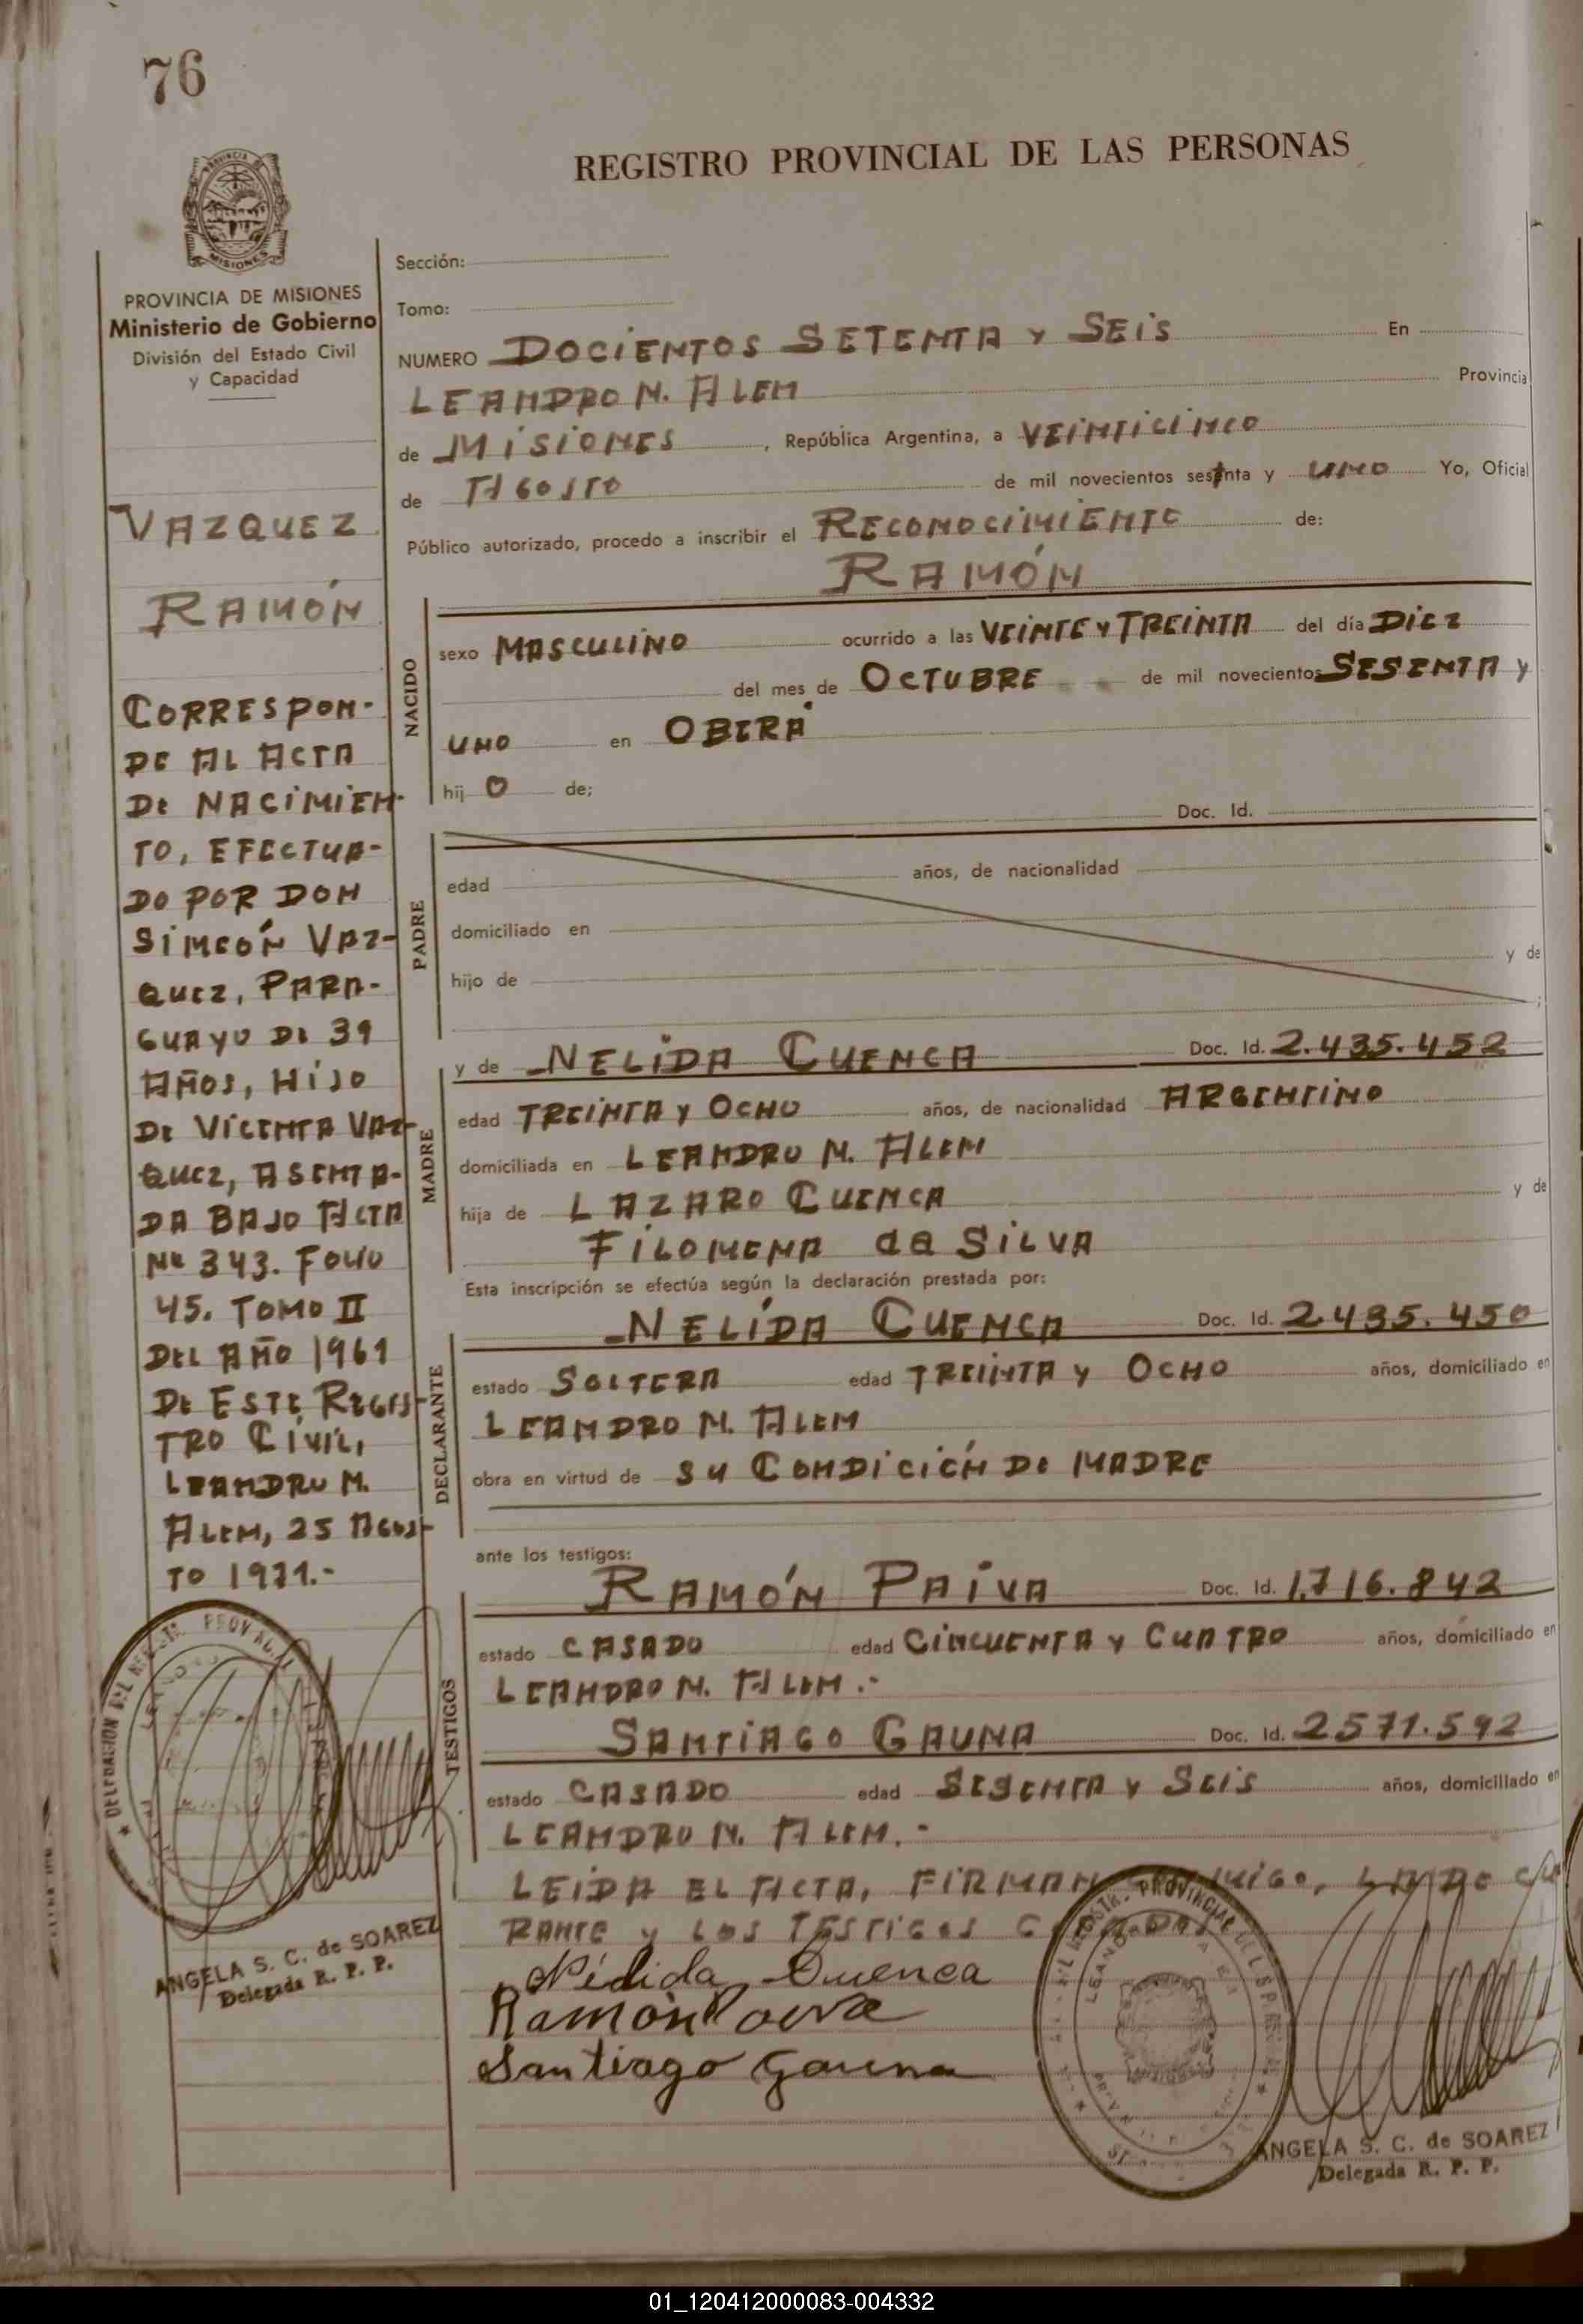 76
REGISTRO PROVINCIAL DE LAS PERSONAS
PROVINCIA DE MISIONES
Ministerio de Gobierno
División del Estado Civil
y Capacidad
VAZQUEZ
RAMÓN
CORRESPON-
DE AL ACTA
DE NACIMIEN-
TO, EFECTUA-
DO POR DON
SIMEÓN VAZ-
QUEZ, PARA-
GUAYO DE 39
AÑOS, HIJO
DE VICENTA VAZ-
QUEZ, ASENTA-
DA BAJO ACTA
Nº 343. FOLIO
45. TOMO II
DEL AÑO 1961
DE ESTE REGIS-
TRO CIVIL,
LEANDRO N.
ALEM, 25 AGOS-
TO 1971.-
ANGELA S. C. de SOAREZ
Delegada R. P. P.
Sección:
Tomo:
NUMERO DOCIENTOS SETENTA Y SEIS En
LEANDRO N. ALEM Provincia
de MISIONES, República Argentina, a VEINTICINCO
de AGOSTO de mil novecientos setenta y UNO Yo, Oficial
Público autorizado, procedo a inscribir el RECONOCIMIENTO de:
RAMÓN
NACIDO
sexo MASCULINO ocurrido a las VEINTE Y TREINTA del día DIEZ
del mes de OCTUBRE de mil novecientos SESENTA Y
UNO en OBERÁ
hij O de;
Doc. Id.
PADRE
edad años, de nacionalidad
domiciliado en
hijo de y de
;
y de NELIDA CUENCA Doc. Id. 2.435.452
MADRE
edad TREINTA Y OCHO años, de nacionalidad ARGENTINO
domiciliada en LEANDRO N. ALEM
hija de LAZARO CUENCA y de
FILOMENA da SILVA
Esta inscripción se efectúa según la declaración prestada por:
NELÍDA CUENCA Doc. Id. 2.435.450
DECLARANTE
estado SOLTERA edad TREINTA Y OCHO años, domiciliado en
LEANDRO N. ALEM
obra en virtud de SU CONDICIÓN DE MADRE
ante los testigos:
RAMÓN PAIVA Doc. Id. 1.716.842
TESTIGOS
estado CASADO edad CINCUENTA Y CUATRO años, domiciliado en
LEANDRO N. ALEM.-
SANTIAGO GAUNA Doc. Id. 2571.592
estado CASADO edad SESENTA Y SEIS años, domiciliado en
LEANDRO N. ALEM.-
LEIDA EL ACTA, FIRMAN
RANTE Y LOS TESTIGOS
Nélida Cuenca
Ramón Paiva
Santiago Gauna
ANGELA S. C. de SOAREZ
Delegada R. P. P.
01_120412000083-004332